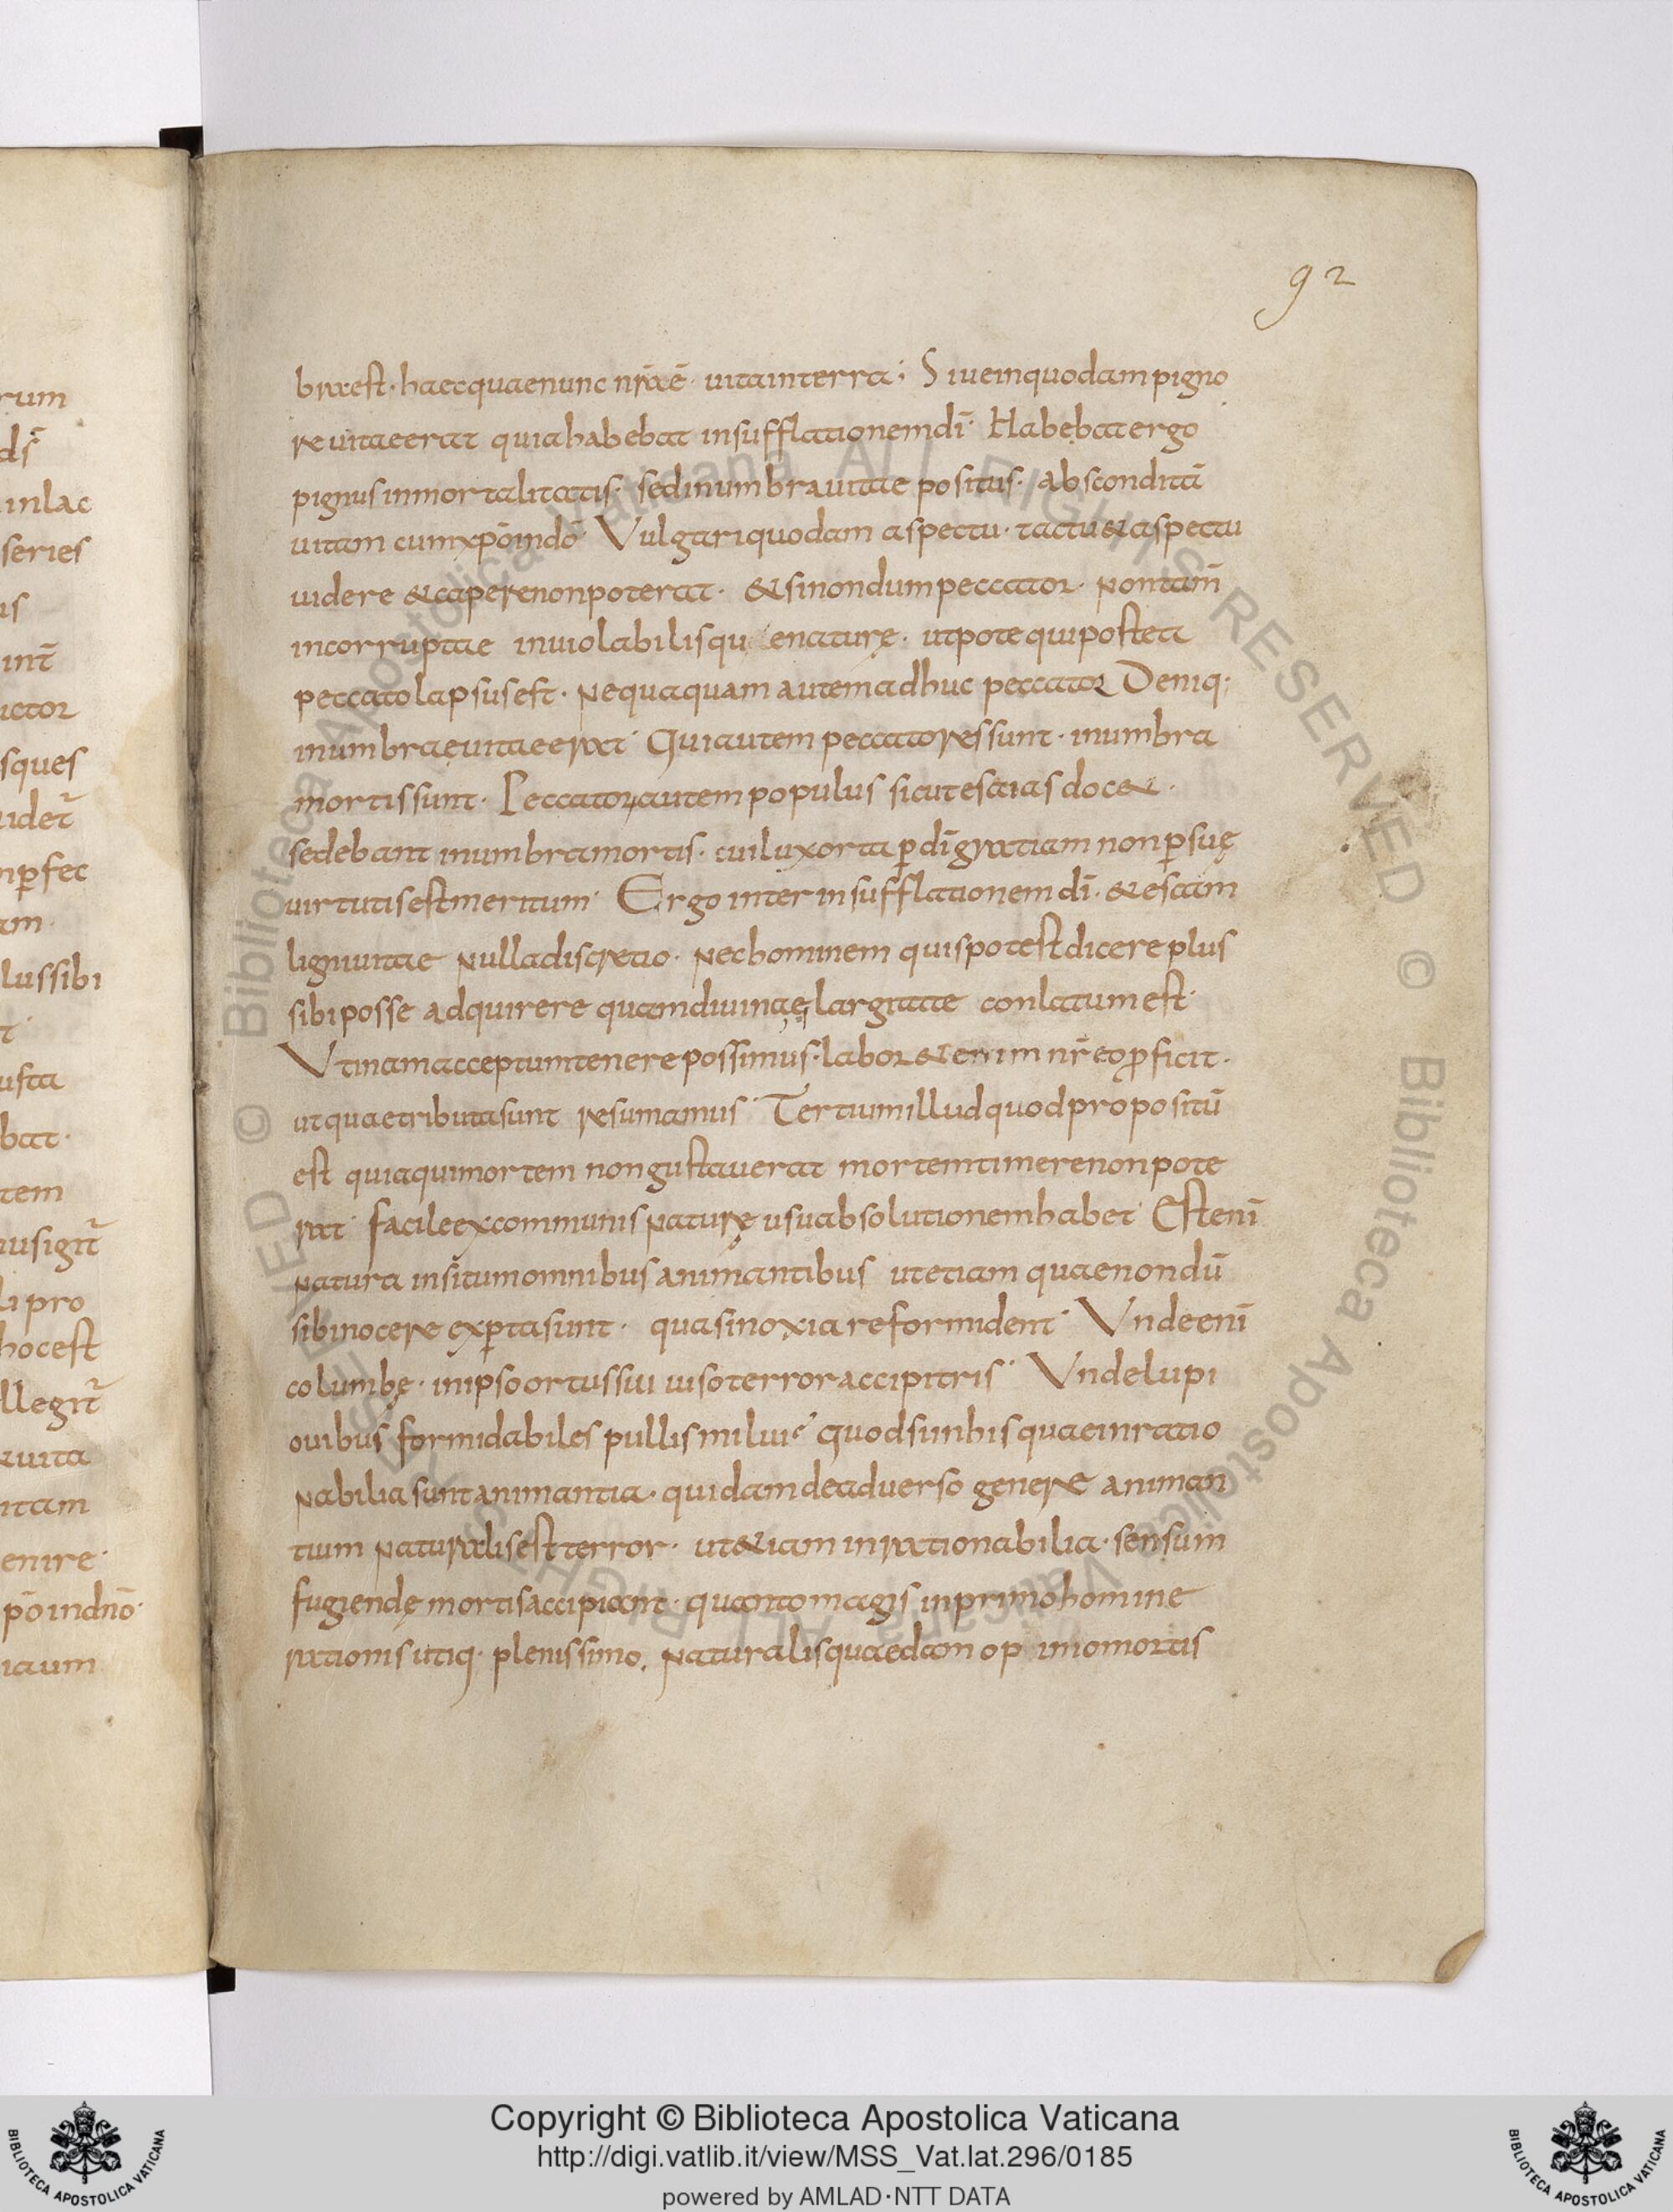 rum
ds̄
inlac
series
us
int̄
uctor
sques
uidet̄
np̄fec
am.
lussibi
t.
usta
bat.
tem
nusigit̄
li pro
hocest
llegit̄
&uita
uitam
enire.
xp̄o indn̄o.
iaum
92
bra est · haec quae nunc nr̄a ē · uita in terra ; Siue in quodam pigno
re uitae erat quia habebat insufflationem dī · Habebat ergo
pignus inmortalitatis · sed in umbra uitae positus · absconditā
uitam cum xp̄o in dō · Vulgari quodam aspectu · tactu & aspectu
uidere & capere non poterat · & si nondum peccator · non tam̄
incorruptae inuiolabilisqu enaturę · utpote qui postea
peccato lapsus est · nequaquam autem adhuc peccator Deniq;
in umbra ęuitae erat · Qui autem peccatores sunt · in umbra
mortis sunt · Peccator autem populus sicut esaias doc& ·
sedebant in umbra mortis · cui lux orta p̄ dī gratiam non p̄ suę
uirtutis est meritum · Ergo inter insufflationem dī · & escam
ligni uitae nulla discretio · nec hominem quis potest dicere plus
sibi posse adquirere quam diuinaę largitate conlatum est ·
Vtinam acceptum tenere possimus · labor & enim nr̄ eo p̄ficit ·
ut quae tributa sunt resumamus · Tertium illud quod propositū
est quia qui mortem non gustauerat mortem timere non pote
rat · facile ex communis naturę usu absolutionem habet · Est enī
natura insitum omnibus animantibus ut etiam quae nondū
sibi nocere exp̄ta sunt · quasi noxia reformident · Vnde enī
columbę · in ipso ortus sui uiso terror accipitris · Vnde lupi
ouibus formidabiles pullis milui · quod si in his quae inratio
nabilia sunt animantia · quidam de aduerso genere animan
tium naturalis est terror · ut &iam inrationabilia · sensum
fugiendę mortis accipiant · quanto magis in primo homine
rationis utiq · plenissimo . naturalis quaedam op inio mortis
© Biblioteca Apostolica Vaticana ALL RIGHTS RESERVED © Biblioteca Apostolica Vaticana ALL RIGHTS RESERVED
BIBLIOTECA APOSTOLICA VATICANA
Copyright © Biblioteca Apostolica Vaticana
http://digi.vatlib.it/view/MSS_Vat.lat.296/0185
powered by AMLAD·NTT DATA
BIBLIOTECA APOSTOLICA VATICANA